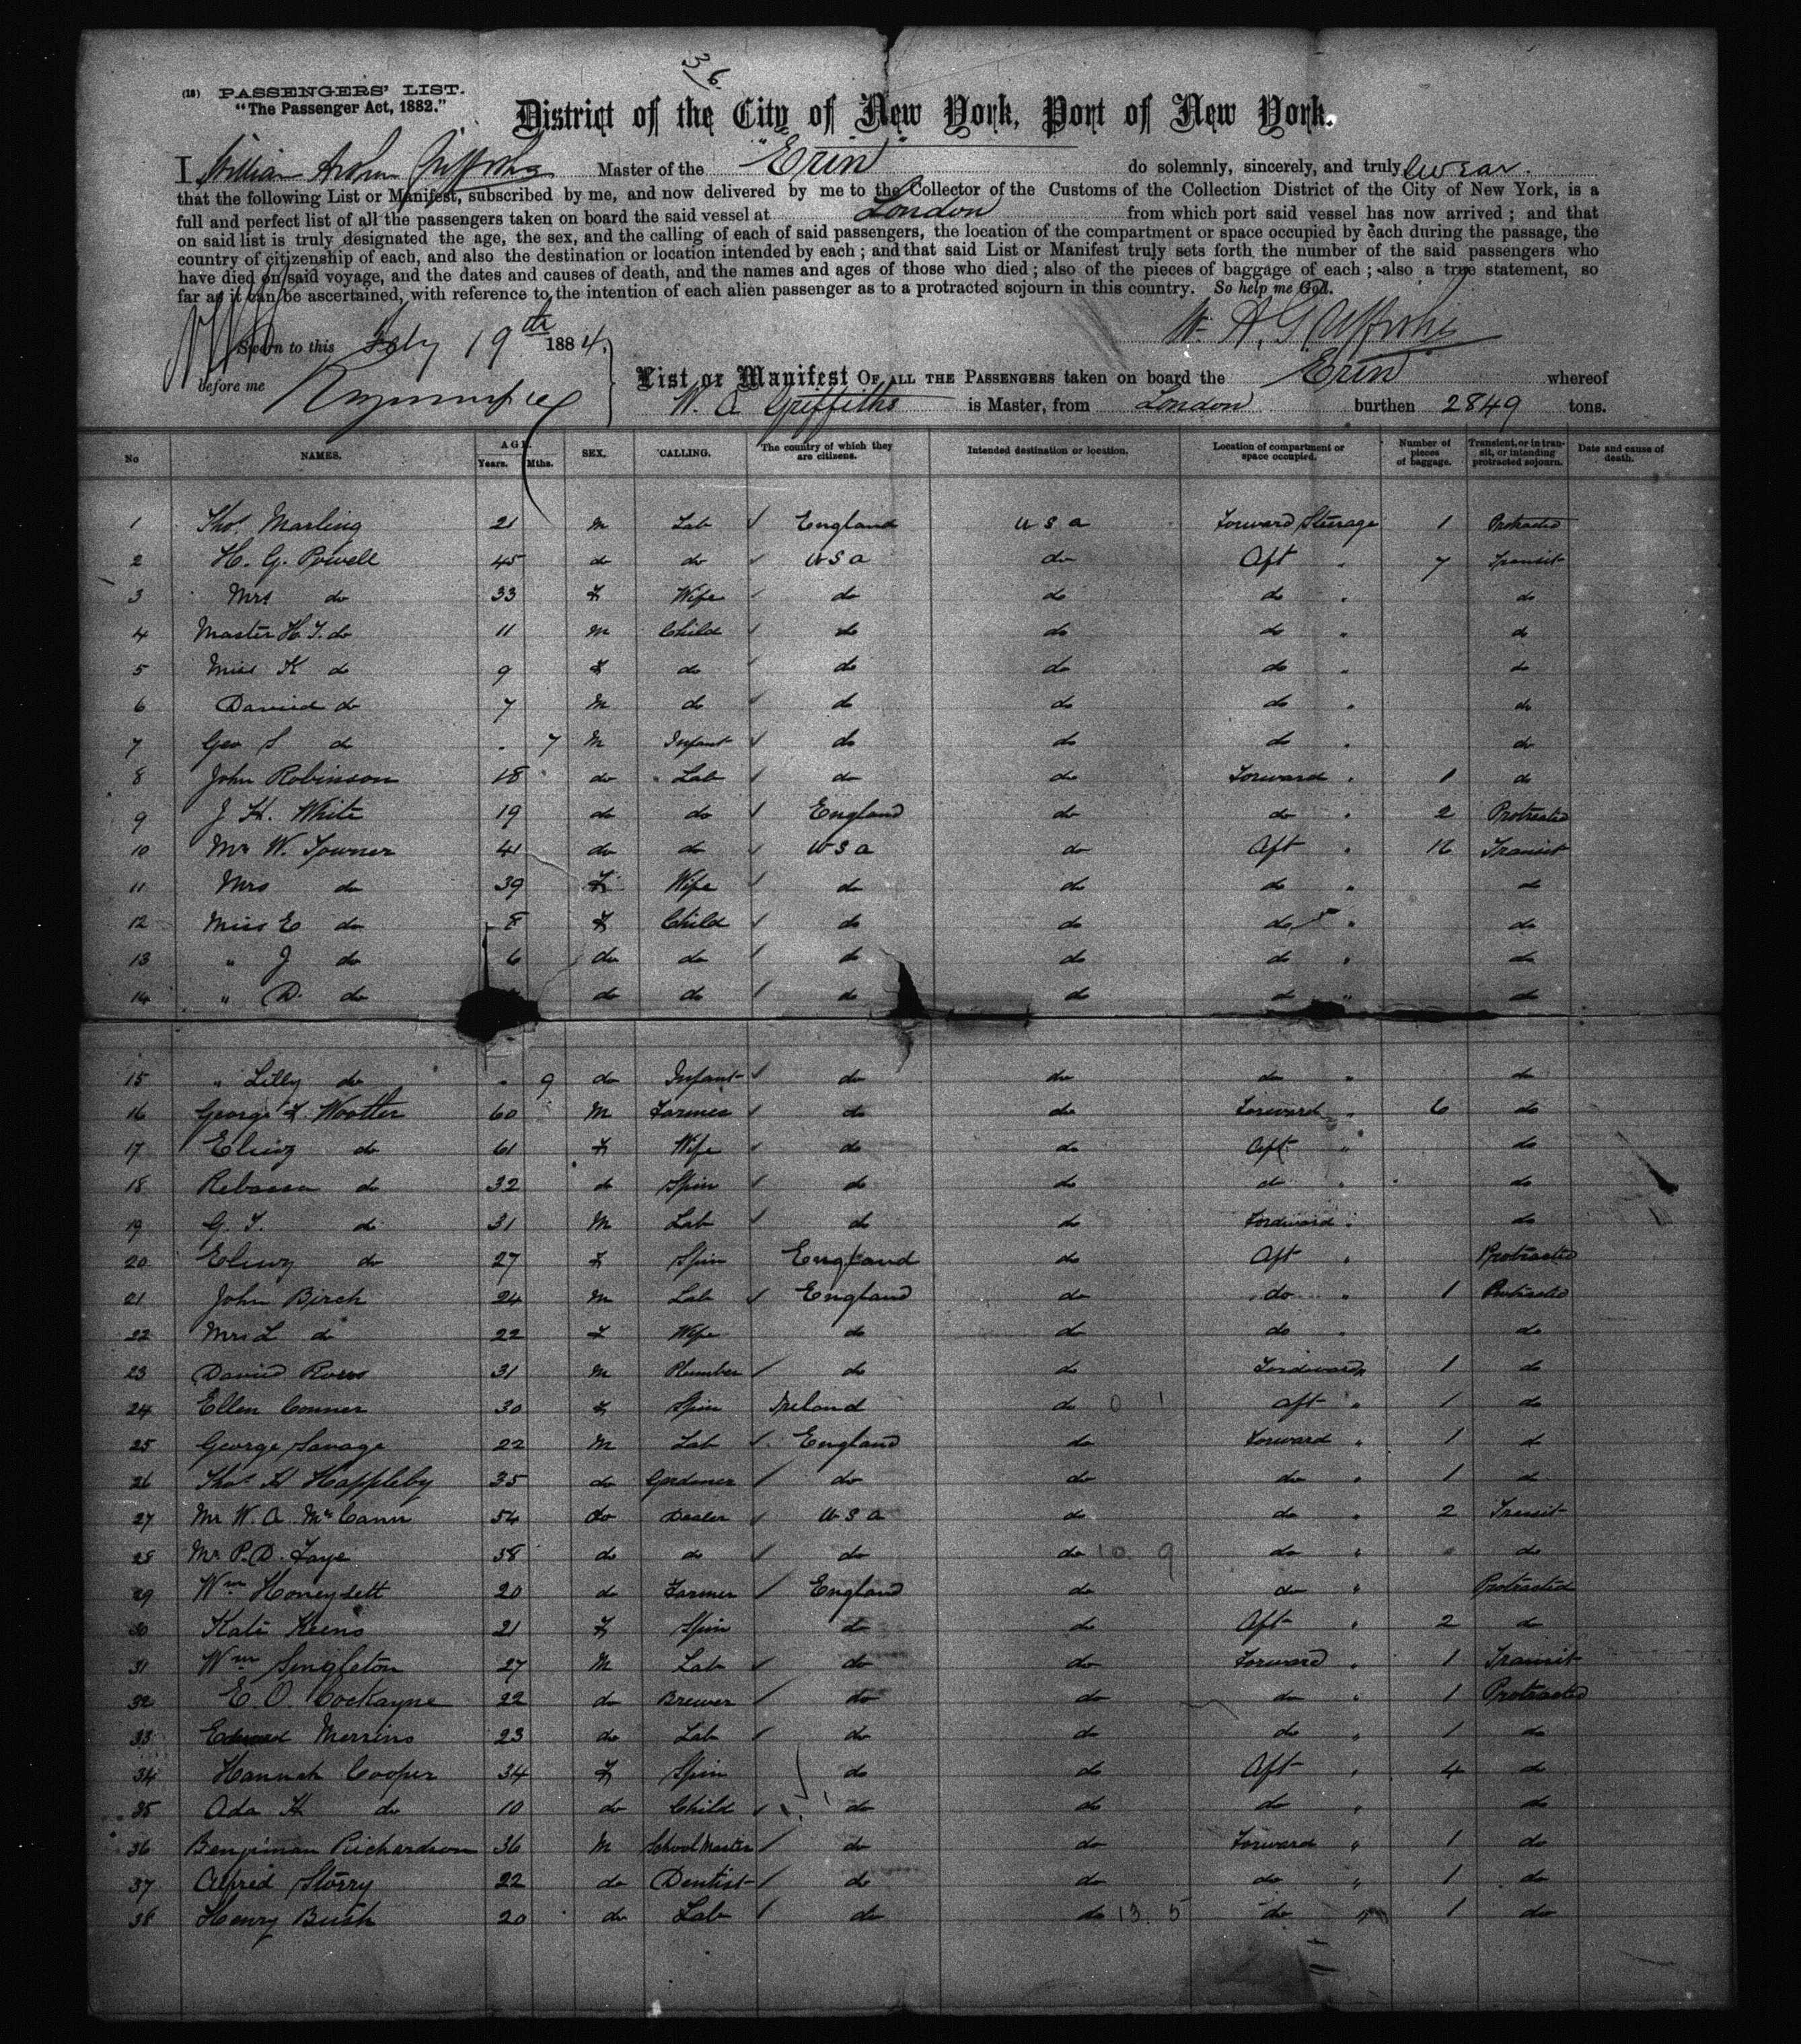 3/6
(18) PASSENGERS' LIST.
"The Passenger Act, 1882."
District of the City of New York, Port of New York.
I, William Arthur Griffiths Master of the "Erin" do solemnly, sincerely, and truly swear.
that the following List or Manifest, subscribed by me, and now delivered by me to the Collector of the Customs of the Collection District of the City of New York, is a
full and perfect list of all the passengers taken on board the said vessel at London from which port said vessel has now arrived; and that
on said list is truly designated the age, the sex, and the calling of each of said passengers, the location of the compartment or space occupied by each during the passage, the
country of citizenship of each, and also the destination or location intended by each; and that said List or Manifest truly sets forth the number of the said passengers who
have died on said voyage, and the dates and causes of death, and the names and ages of those who died; also of the pieces of baggage of each; also a true statement, so
far as it can be ascertained, with reference to the intention of each alien passenger as to a protracted sojourn in this country. So help me God.
W. A. Griffiths
Sworn to this Feby 19th 1884,
before me
List or Manifest OF ALL THE PASSENGERS taken on board the Erin whereof
W. A Griffiths is Master, from London burthen 2849 tons.
No NAMES. AGE. Years. Mths. SEX. CALLING. The country of which they are citizens. Intended destination or location. Location of compartment or space occupied. Number of pieces of baggage. Transient, or in transit, or intending protracted sojourn. Date and cause of death.
1 Thos. Marling 21 M Lab England U S A Forward Steerage 1 Protracted
2 H. G. Powell 45 do do U S A do Aft " 7 Transit
3 Mrs do 33 F Wife do do do " do
4 Master H. T. do 11 M Child do do do " do
5 Miss K do 9 F do do do do " do
6 David do 7 M do do do do " do
7 Geo S do . 7 M Infant do do do " do
8 John Robinson 18 do Lab do do Forward " 1 do
9 J H. White 19 do do England do do " 2 Protracted
10 Mr W. Towner 41 do do U S A do Aft " 16 Transit
11 Mrs do 39 F Wife do do do " do
12 Miss E do 8 F Child do do do " do
13 " J do 6 do do do do do " do
14 " D. do do do do do do " do
15 " Lilly do . 9 do Infant do do do " do
16 George F. Wootter 60 M Farmer do do Forward " 6 do
17 Elizz do 61 F Wife do do Aft " do
18 Rebacca do 32 do Spin do do do " do
19 G. T. do 31 M Lab do do Fordward " do
20 do 27 F Spin England do Aft " Protracted
21 John Birch 24 M Lab England do do " 1 Protracted
22 Mrs L do 22 F Wife do do do " do
23 David 31 M Plumber do do Fordward " 1 do
24 Ellen Conner 30 F Spin Ireland do 0 1 aft " 1 do
25 George Savage 22 M Lab England do Forward " 1 do
26 Thos. H Happleby 35 do Gardener do do do 1 do
27 Mr W. A. McCann 54 do Dealer U S A do do " 2 Transit
28 Mr. P. D. Faye 38 do do do do 10 9 do " " do
29 Wm Honeysett 20 do Farmer England do do " Protracted
30 Kate Keens 21 F Spin do do Aft " 2 do
31 Wm Singleton 27 M Lab do do Forward " 1 Transit
32 E. O. Cockayne 22 do Brewer do do do " 1 Protracted
33 Edward Merrins 23 do Lab do do do " 1 do
34 Hannah Cooper 34 F Spin do do Aft " 4 do
35 Ada H do 10 do Child do do do " do
36 Benjiman Richardson 36 M School Master do do Forward " 1 do
37 Alfred Storry 22 do Dentist do do do " 1 do
38 Henry Bush 20 do Lab do do 13. 5 do " 1 do